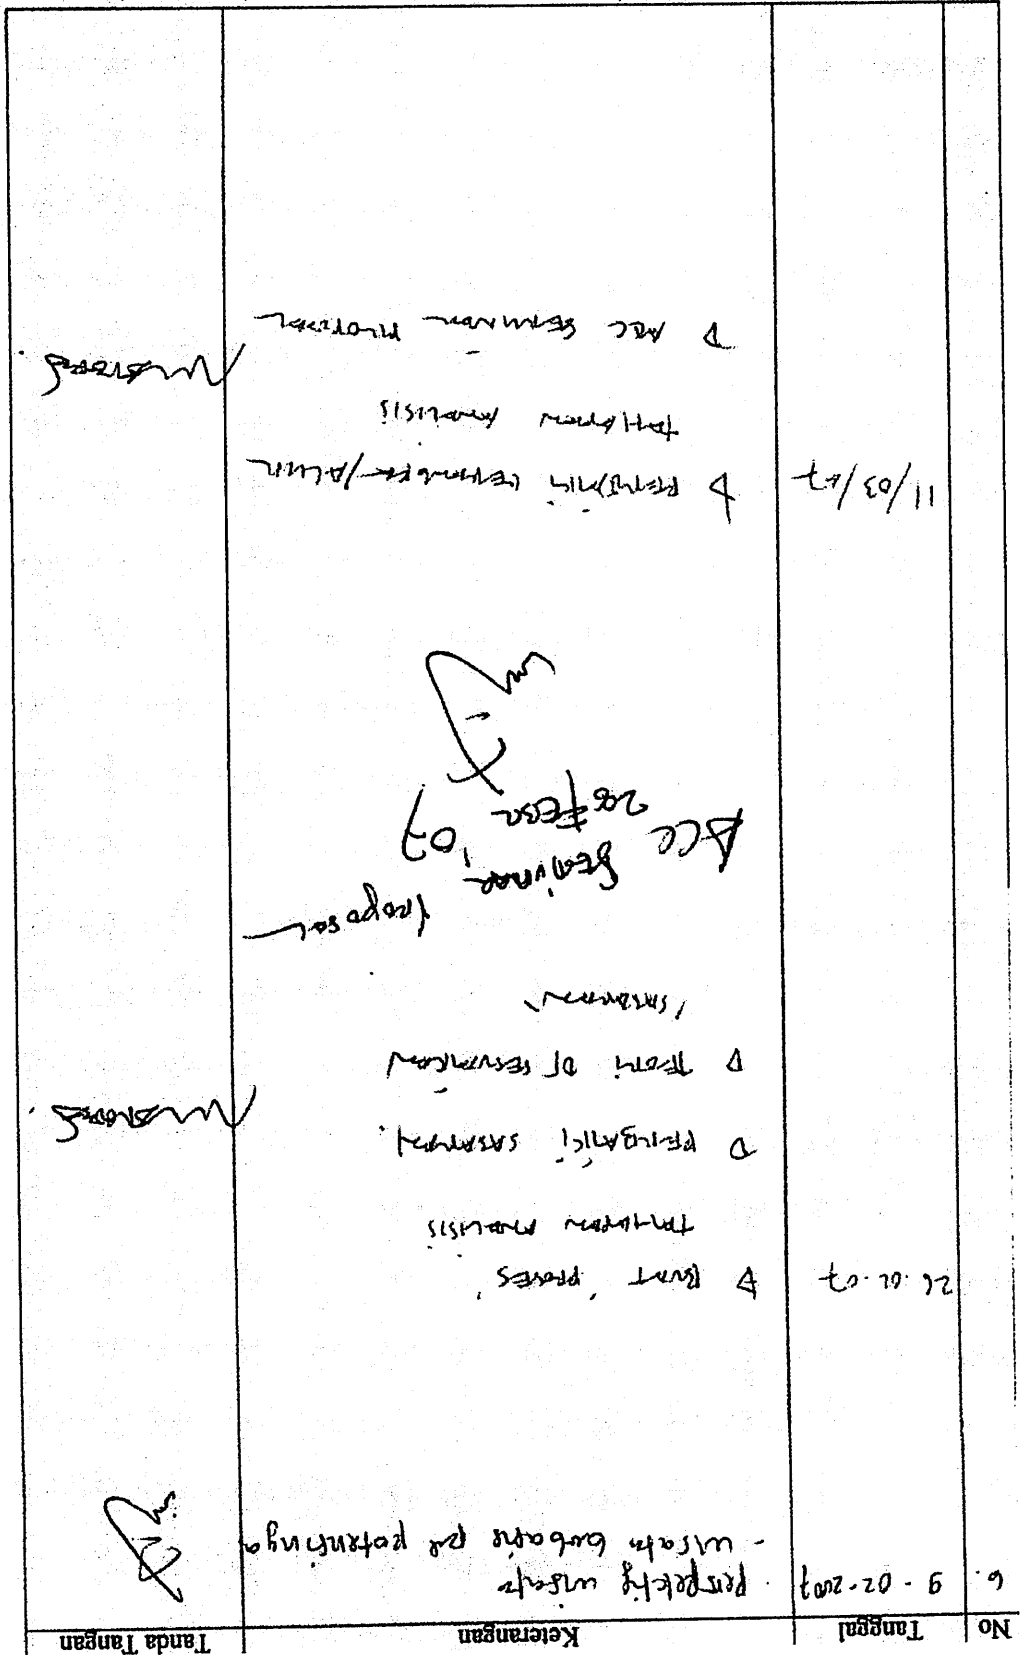 No Tanggal Keterangan Tanda Tangan
6. 9 - 02 - 2007 - perspektif wisata
- wisata
26.02.07 BUAT PROSES
TAHAPAN ANALISIS
PERBAIKI SASARAN.
TEORI DI SESUAIKAN
'SASARAN'
ACC Seminar Proposal
28 FEBR '07
11/03/07 PERBAIKI KERANGKA/ALUR
TAHAPAN ANALISIS
ACC SEMINAR PROPOSAL